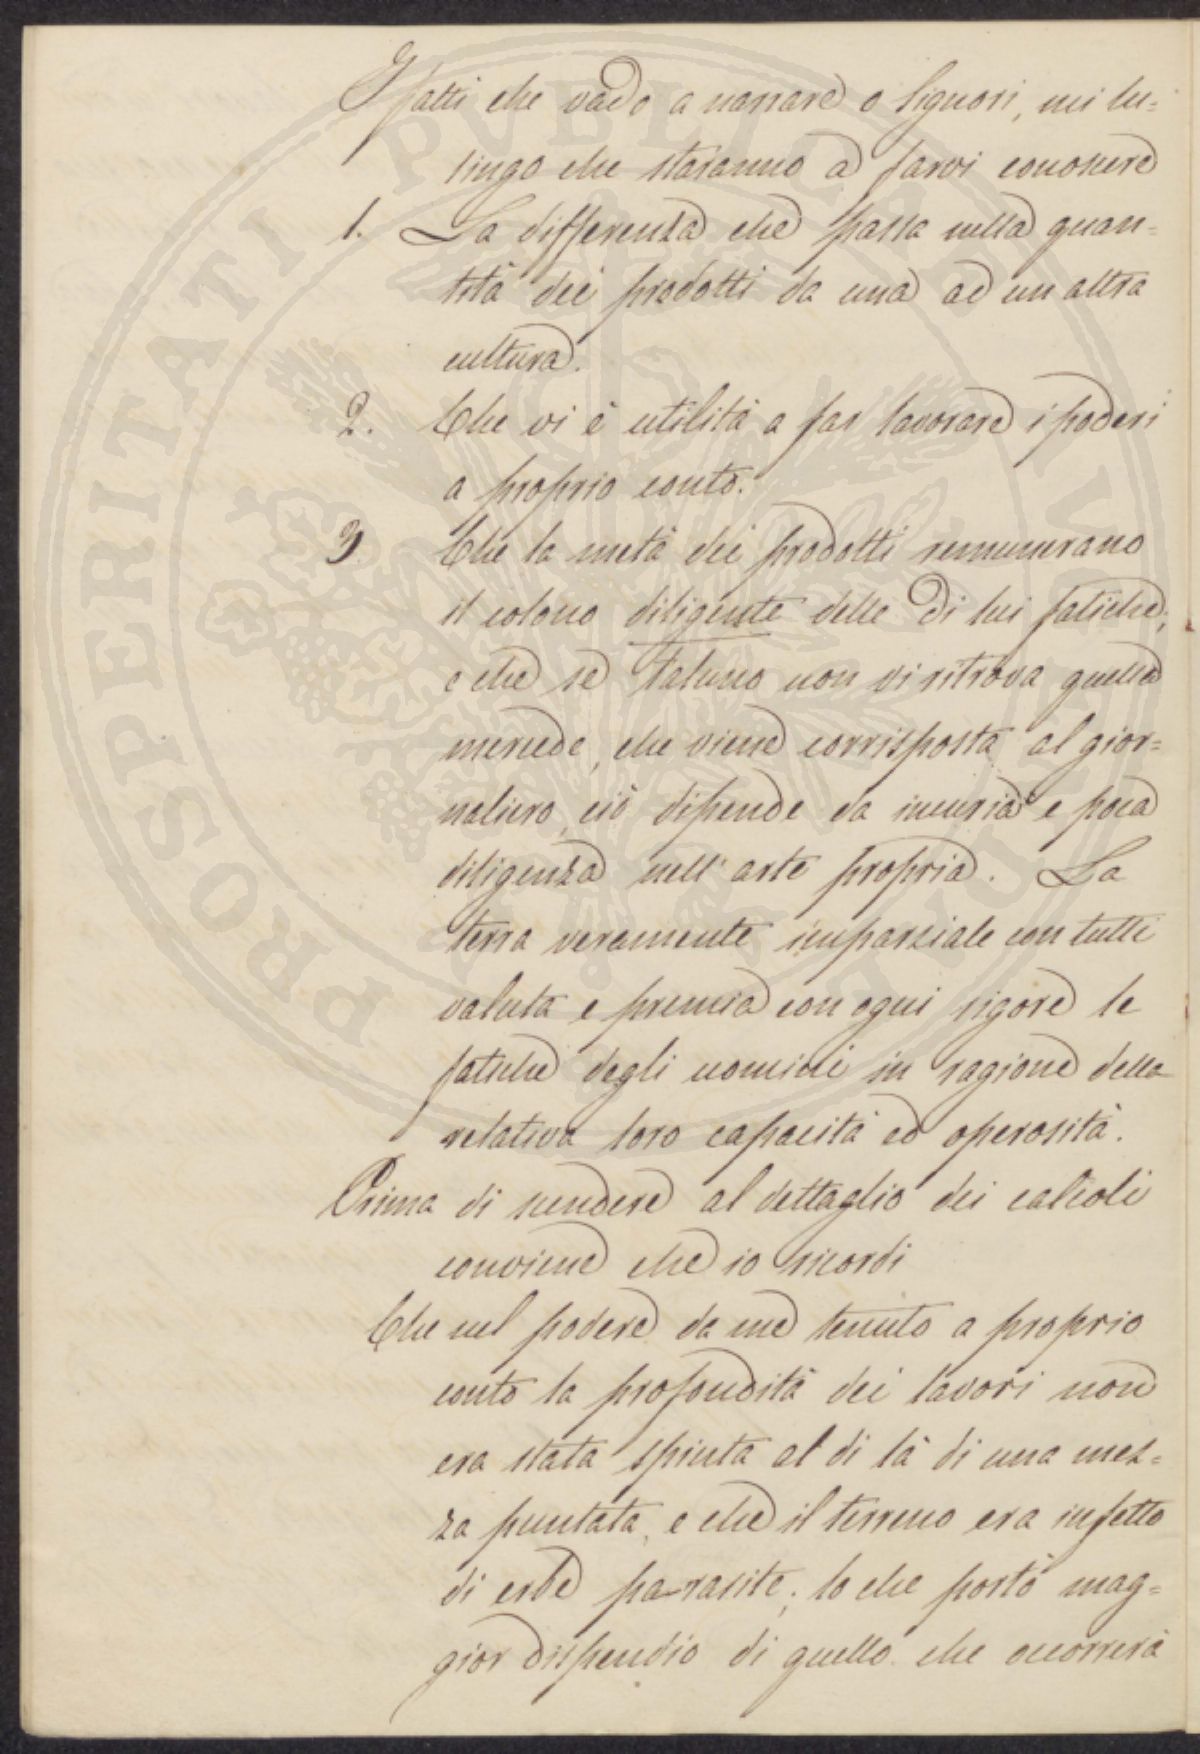 I fatti che vado a narrare o Signori, mi lu=
singo che staranno a farvi conoscere
1. La differenza che passa nella quan=
tità dei prodotti da una ad un altra
cultura.
2. Che vi è utilità a far lavorare i poderi
a proprio conto.
3 Che la metà dei prodotti remunerano
il colono diligente delle di lui fatiche,
e che se taluno non vi ritrova quella
mercede, che viene corrisposta al gior=
naliero, ciò dipende da incuria e poca
diligenza nell'arte propria. La
terra veramente imparziale con tutti
valuta e premia con ogni rigore le
fatiche degli uomini in ragione della
relativa loro capacità ed operosità.
Prima di scendere al dettaglio dei calcoli
conviene che io ricordi
Che nel podere da me tenuto a proprio
conto la profondità dei lavori non
era stata spinta al di là di una mez=
za puntata, e che il terreno era infetto
di erbe parasite; lo che portò mag=
gior dispendio di quello che occorrerà
PROSPERITATI PVBLICAE